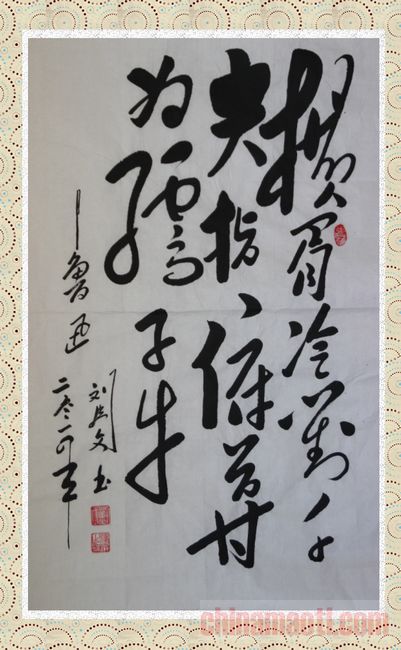 横眉冷對千
夫指、俯首甘
为孺子牛
—鲁迅
二零一四年
刘文书
chinamaotl.com